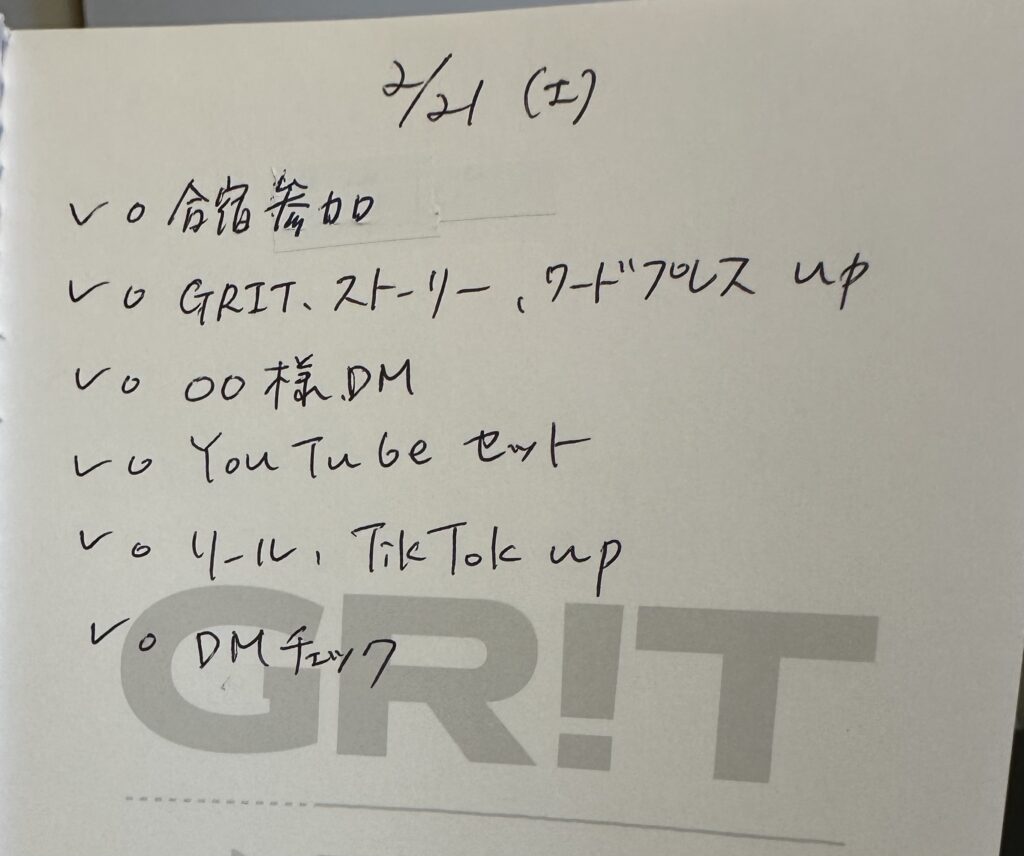 2/21 (土)
✓○ 合宿参加
✓○ GRIT、ストーリー、ワードプレス up
✓○ 〇〇様、DM
✓○ YouTube セット
✓○ リール、TikTok up
✓○ DMチェック
GR!T